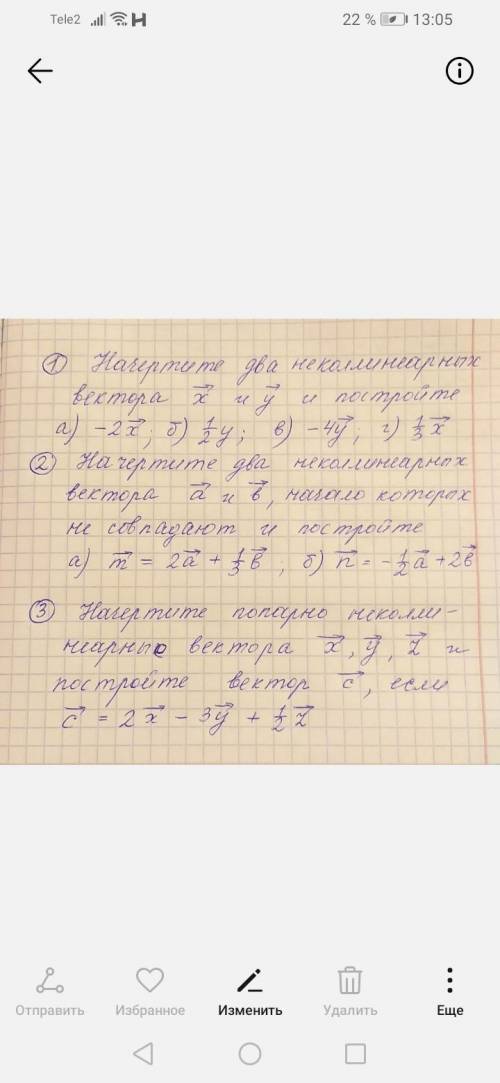 Tele2 22 % 13:05
① Начертите два неколлинеарных
вектора x⃗ и y⃗ и постройте
а) -2x⃗; б) 1/2 y; в) -4y⃗; г) 1/3 x⃗
② Начертите два неколлинеарных
вектора a⃗ и b⃗, начало которых
не совпадают и постройте
а) m⃗ = 2a⃗ + 1/3 b⃗, б) n⃗ = -1/2 a⃗ + 2b⃗
③ Начертите попарно неколли-
неарные вектора x⃗, y⃗, z⃗ и
постройте вектор c⃗, если
c⃗ = 2x⃗ - 3y⃗ + 1/2 z⃗
Отправить Избранное Изменить Удалить Еще